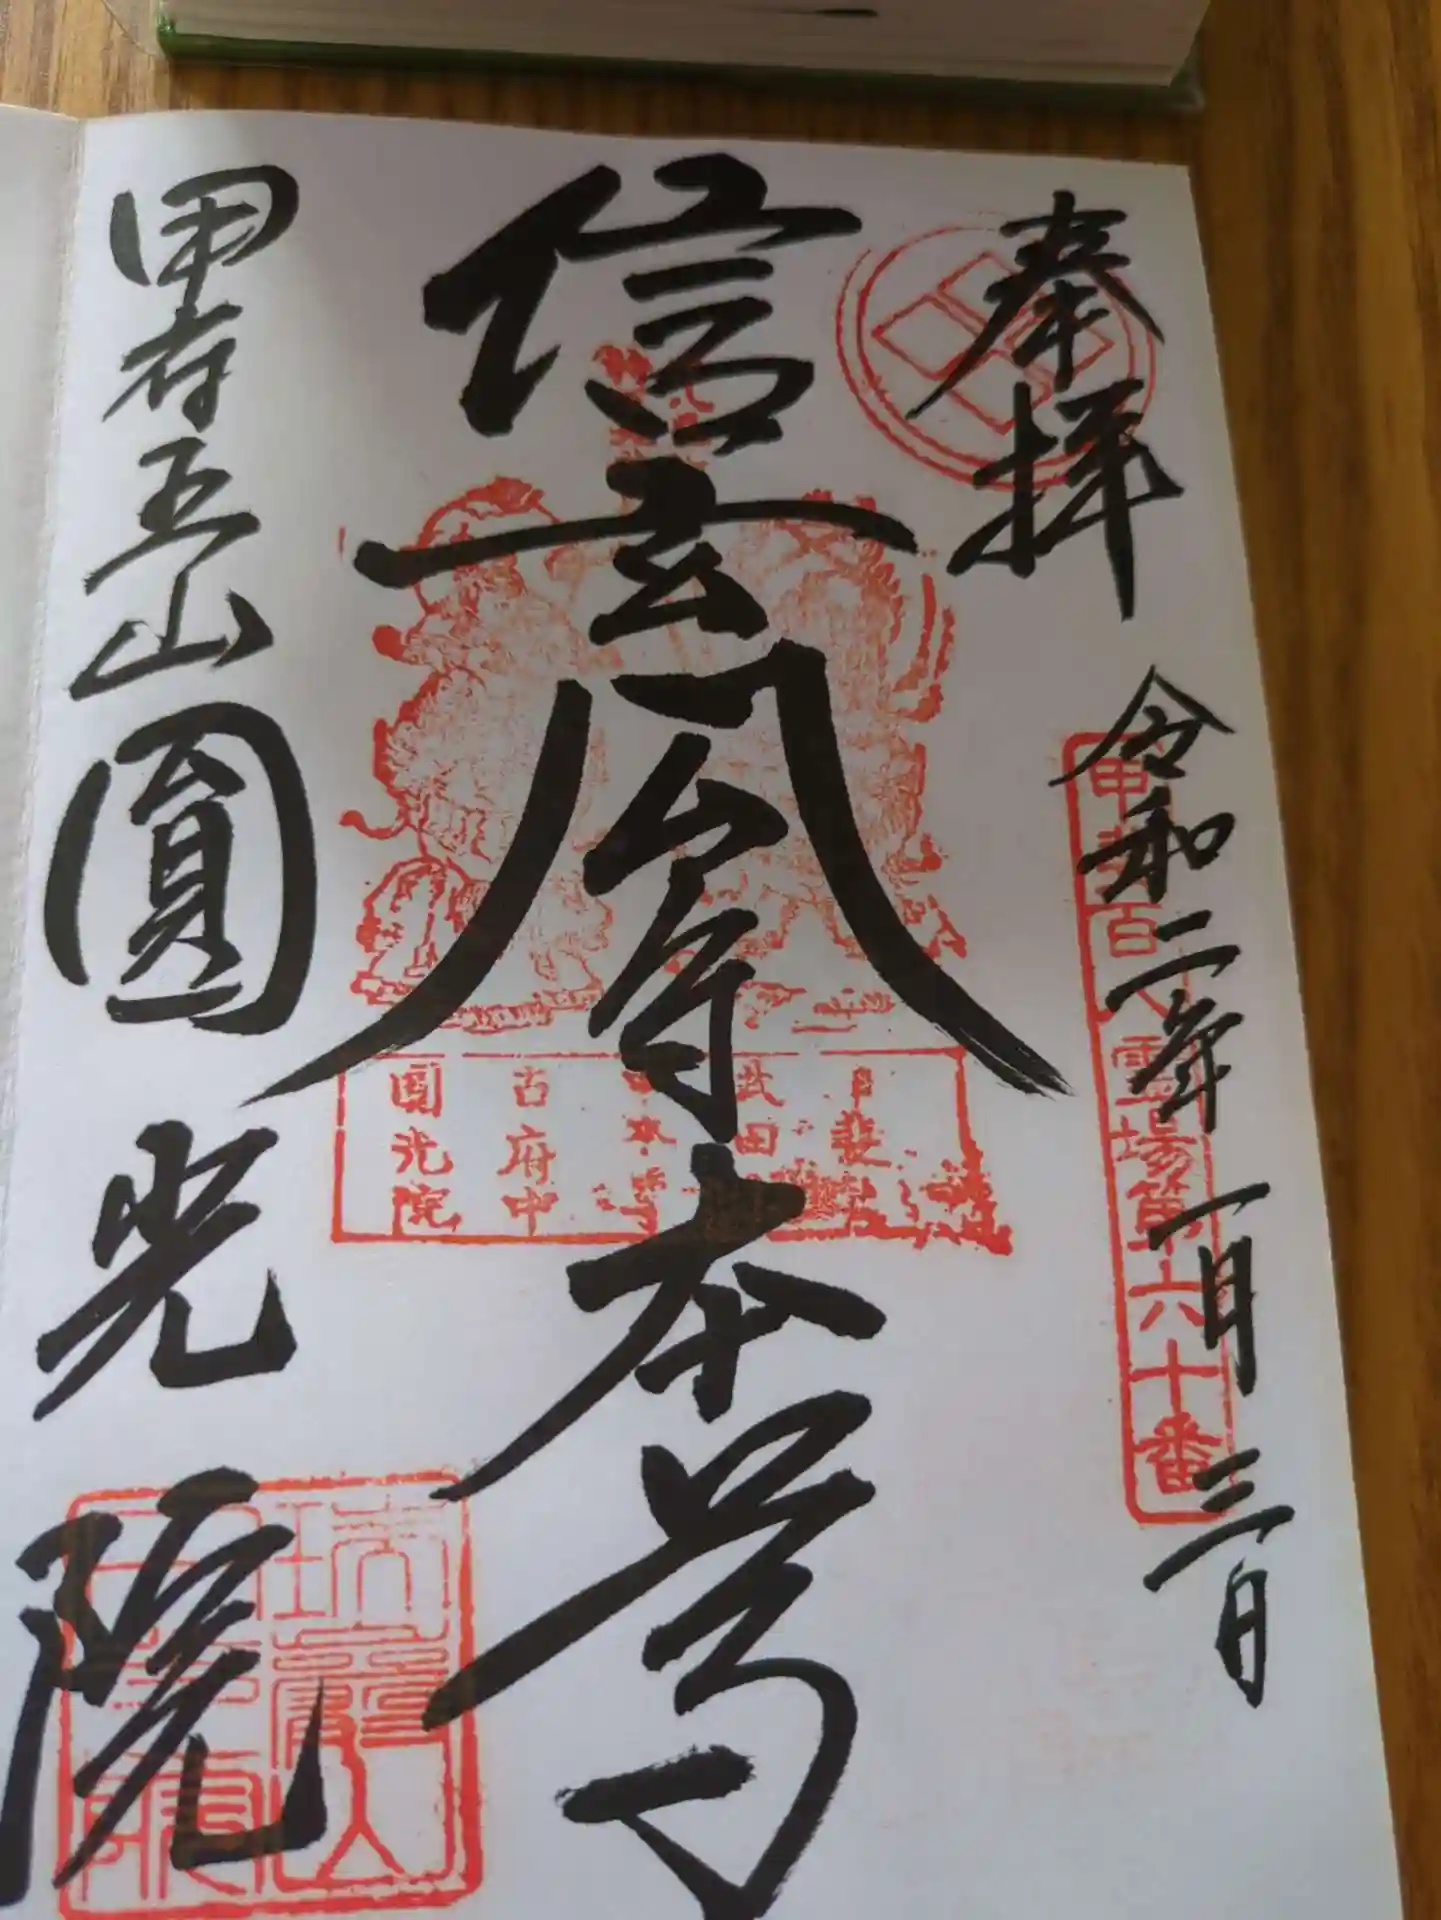 奉拝
令和二年 一月 三日
甲斐百八霊場第六十番
信玄公本尊
甲斐
武田
本尊
古府中
圓光院
甲府五山 圓光院
瑞巖山